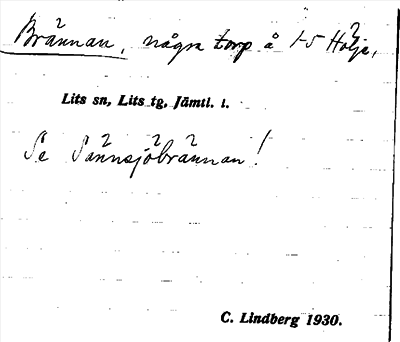 Brännan, några torp å 1-5 Hölje,
Lits sn, Lits tg, Jämtl. l.
Se Sännsjöbrännan!
C. Lindberg 1930.